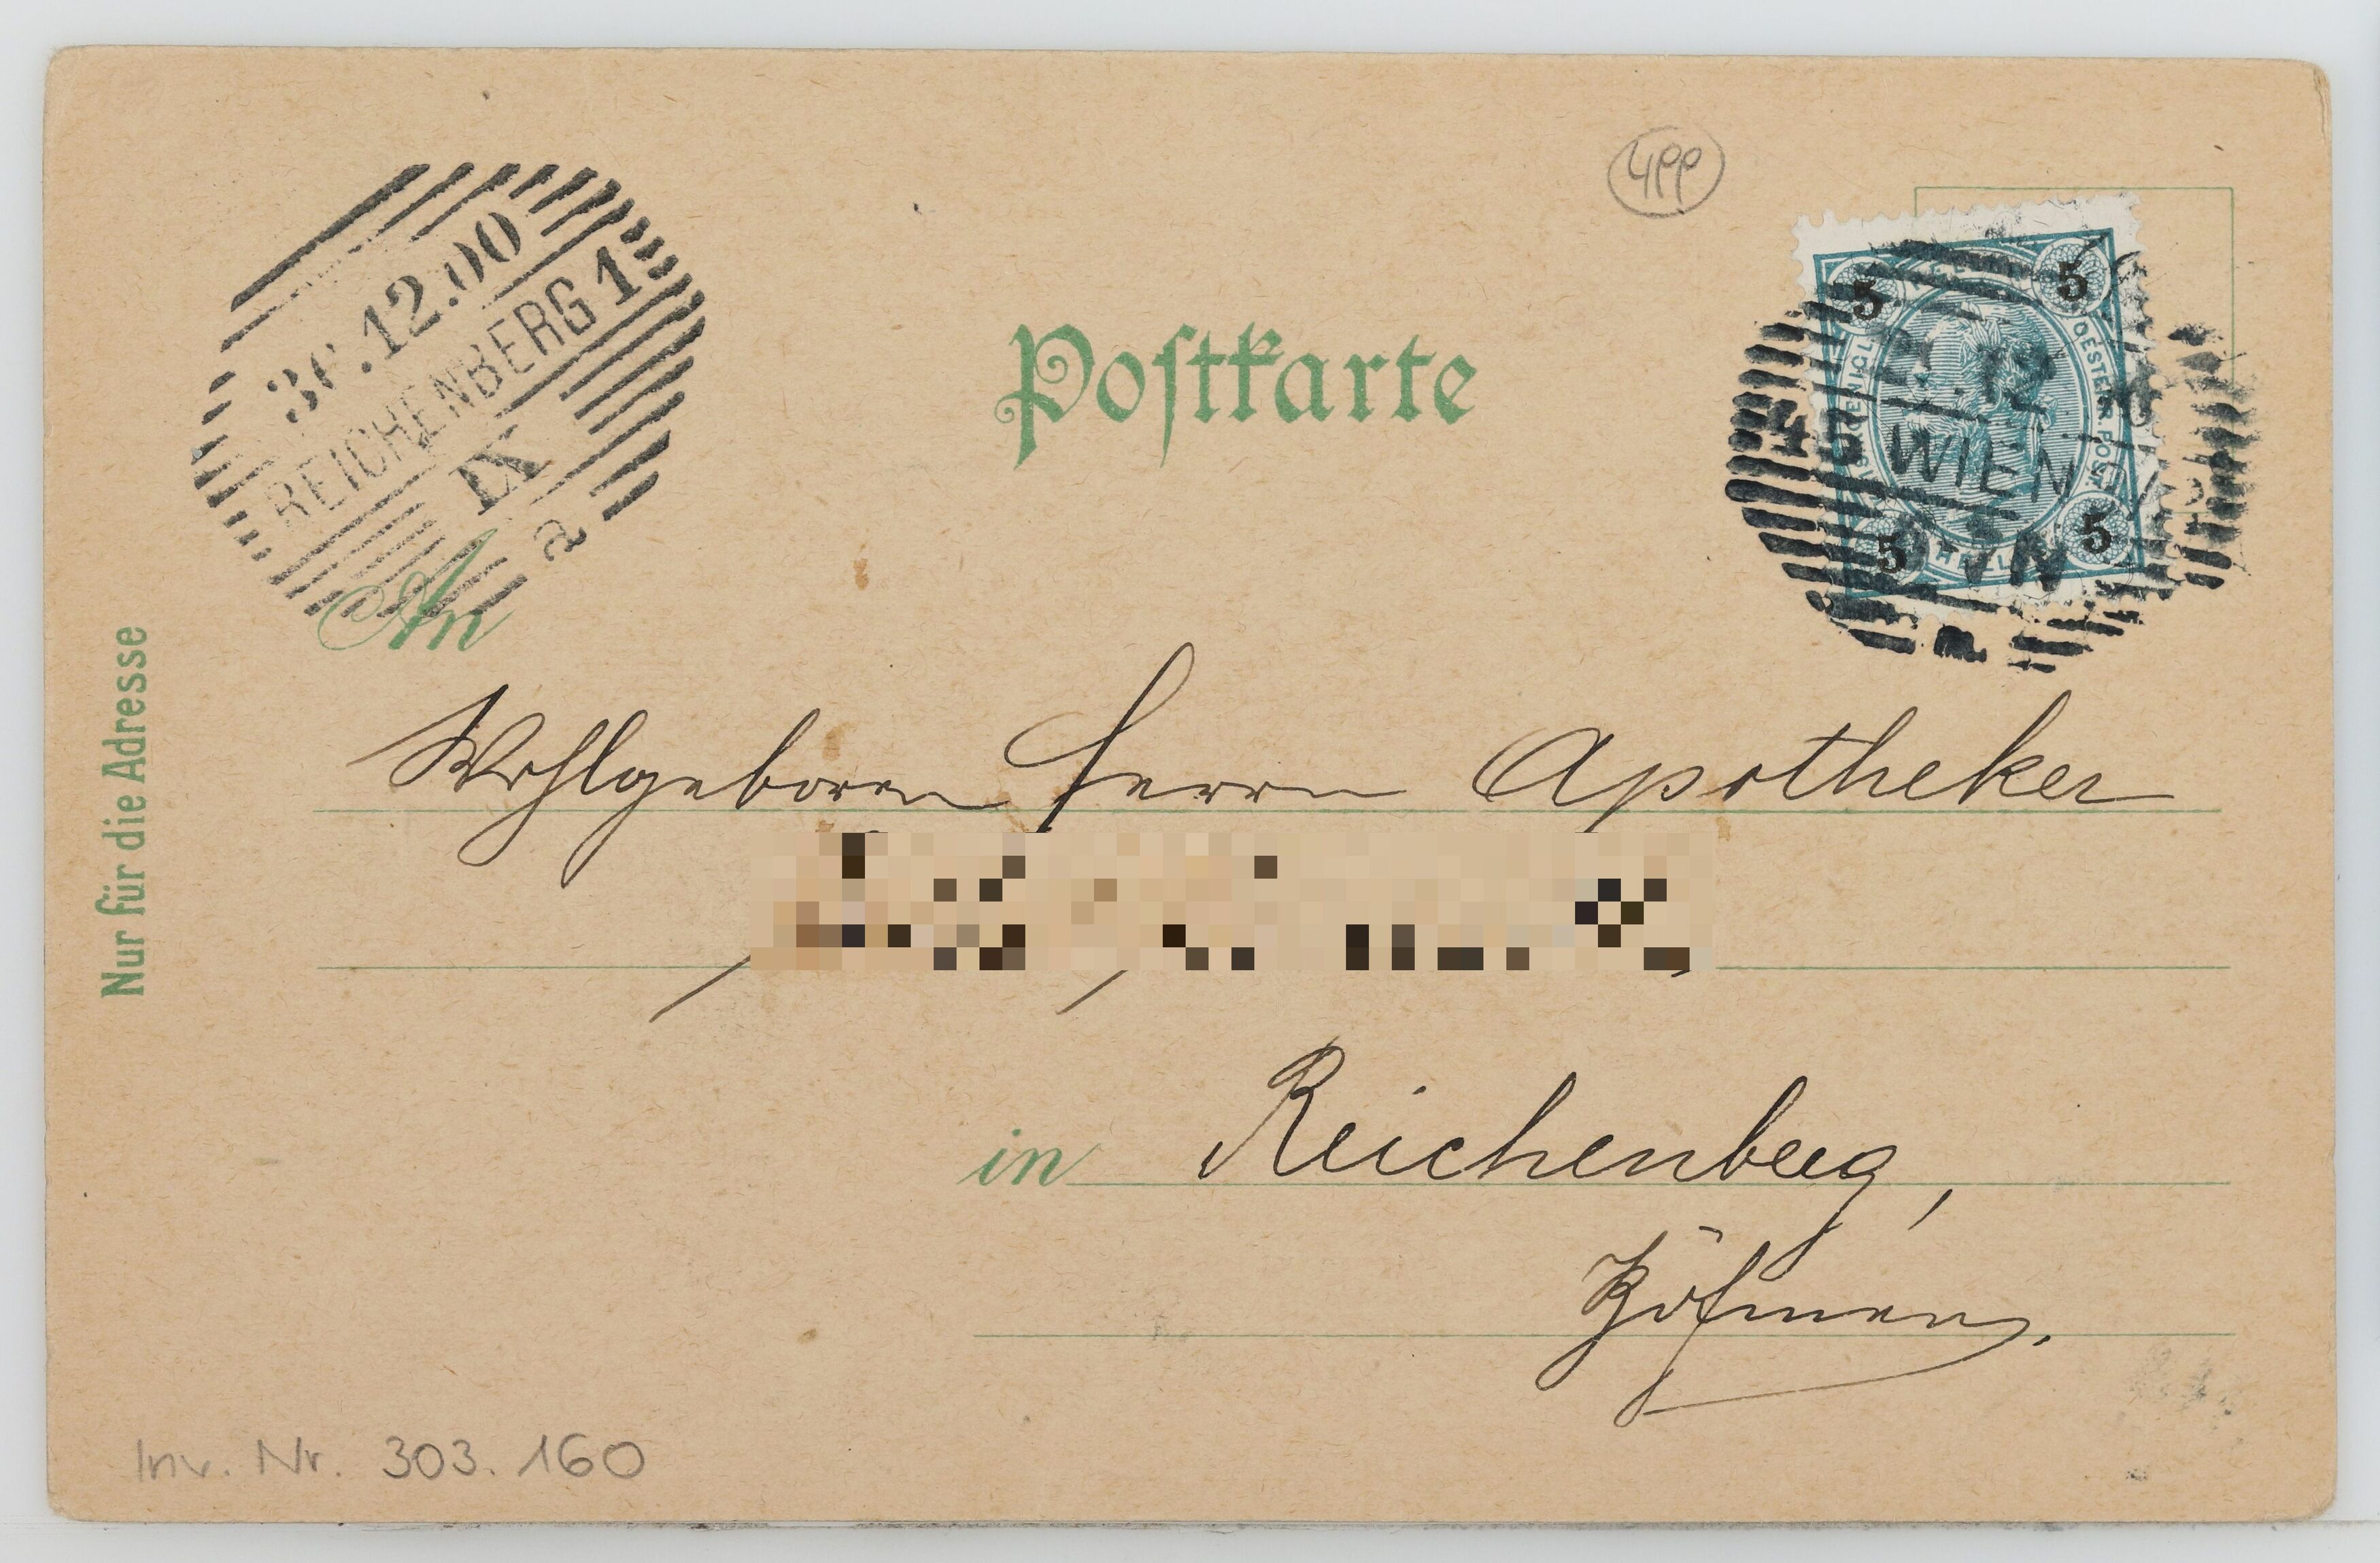 4PP
30.12.00
REICHENBERG 1
IX
a
Postkarte
5 5
.12
WIEN
5 5
An
Nur für die Adresse
Wohlgeboren Herrn Apotheker
in Reichenberg,
Böhmen.
Inv. Nr. 303.160